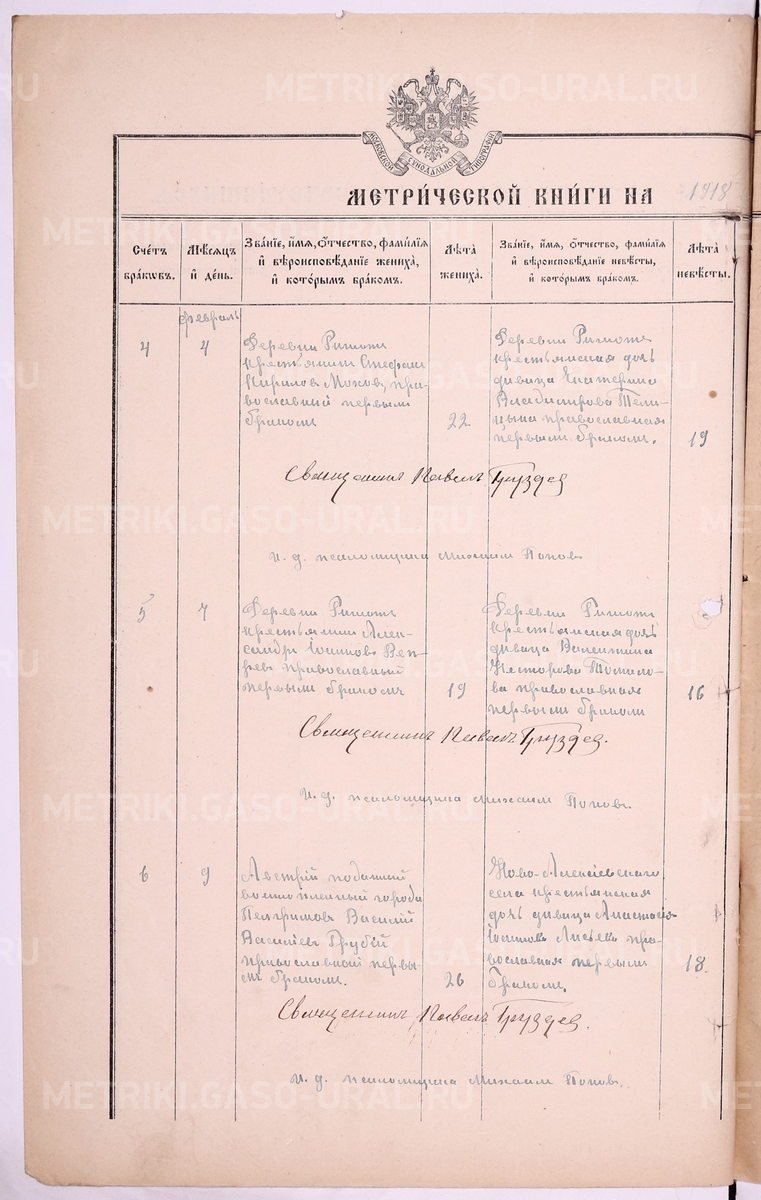 МОСКОВСКОЙ СУНОДАЛЬНОЙ ТИПОГРАФІИ
МЕТРИ́ЧЕСКОЙ КНИ́ГИ НА 1918
Счéтъ бра́ковъ.
Мѣ́сяцъ и҆ де́нь.
Зва́нїе, и҆́мѧ, ѻ҆́тчество, фами́лїѧ и҆ вѣроисповѣ́данїе жениха̀, и҆ кото́рымъ бра́комъ.
Лѣ́та жениха̀.
Зва́нїе, и҆́мѧ, ѻ҆́тчество, фами́лїѧ и҆ вѣроисповѣ́данїе невѣ́сты, и҆ кото́рымъ бра́комъ.
Лѣ́та невѣ́сты.
февраль
4
4
Деревни
крестьянинъ Стефанъ
Кириловъ Моховъ, пра-
вославный первымъ
бракомъ
22
Деревни
крестьянская дочь
дѣвица Екатерина
Владимірова Тели-
цына православная
первымъ бракомъ.
19
Священникъ Павелъ Груздев
И. д. псаломщика Михаилъ Поповъ
5
7
Деревни
крестьянинъ Алек-
сандръ Іоанновъ Веп-
ревъ православный
первымъ бракомъ
19
Деревни
крестьянская дочь
дѣвица Валентина
Несторова Томило-
ва православная
первымъ бракомъ
16
Священникъ Павелъ Груздев.
И. д. псаломщика Михаилъ Поповъ.
6
9
Австрій подданный
военноплѣнный города
Пелгримовъ Василій
Василіевъ Грубій
православный первы-
мъ бракомъ.
26
Ново-Алексіевскаго
села крестьянская
дочь дѣвица Анастасія
Іоаннова Лисьева пра-
вославная первымъ
бракомъ.
18.
Священникъ Павелъ Груздев.
И. д. псаломщика Михаилъ Поповъ.
METRIKI.GASO-URAL.RU